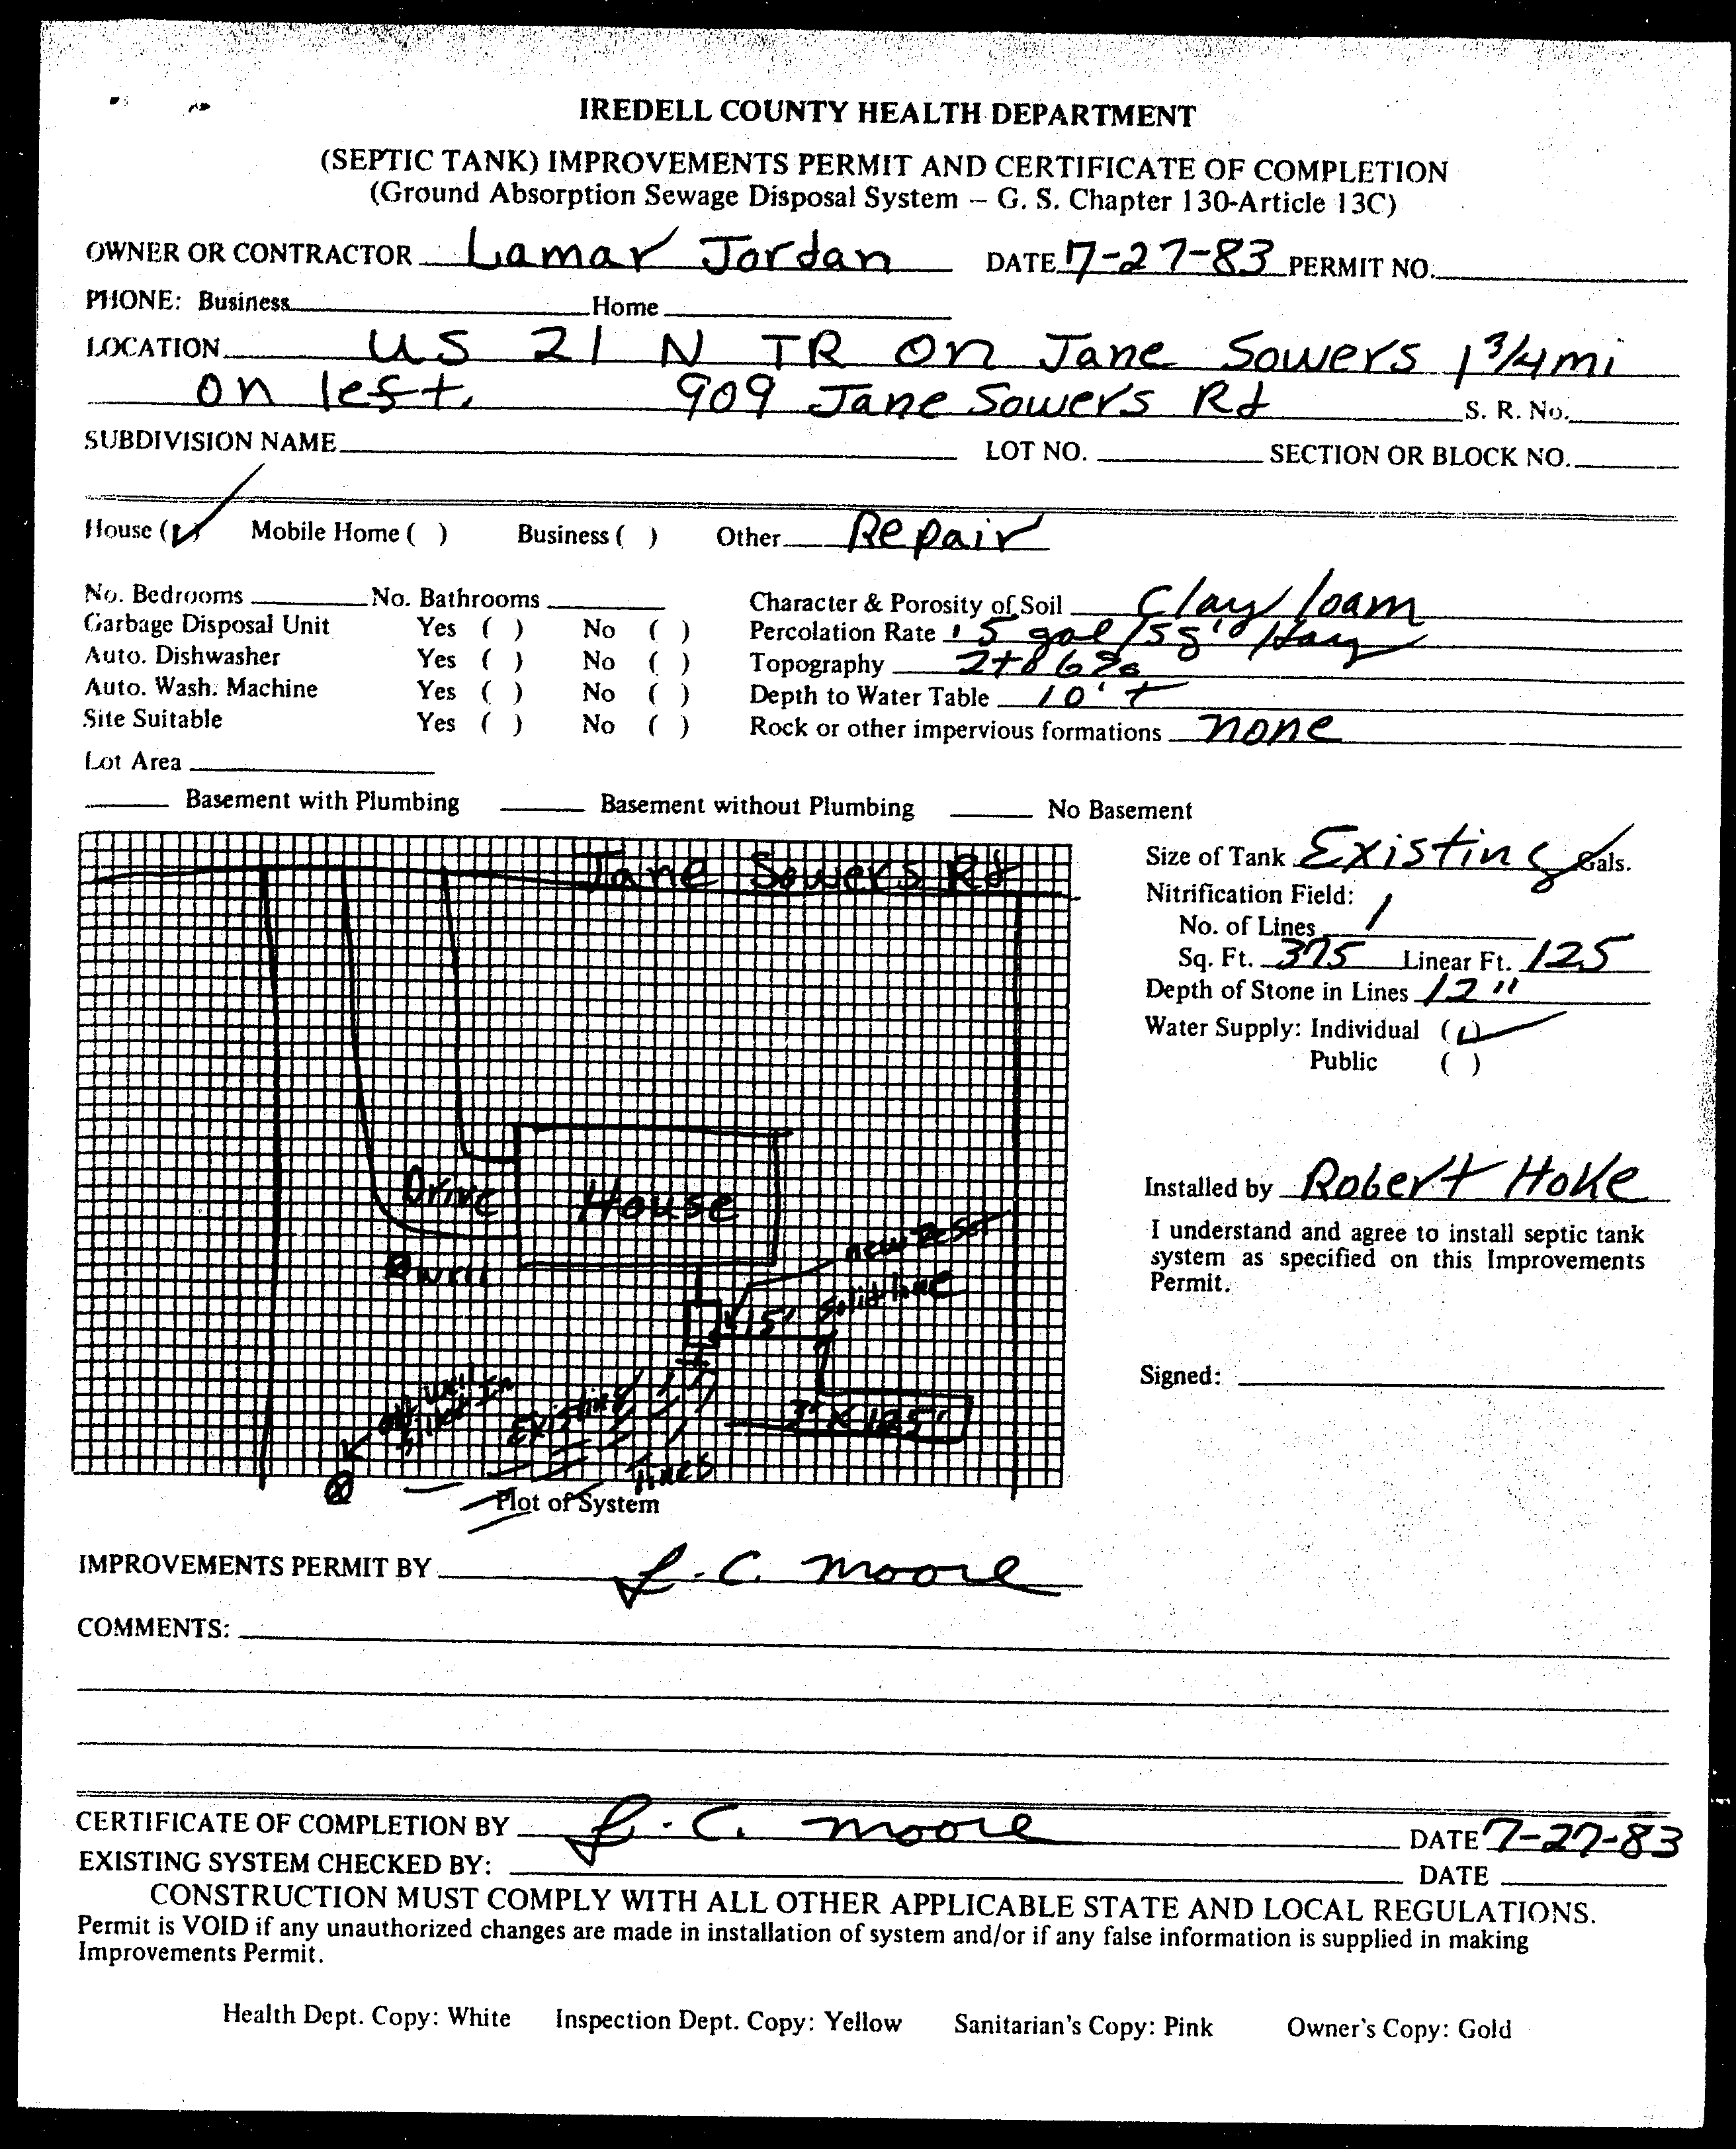 IREDELL COUNTY HEALTH DEPARTMENT
(SEPTIC TANK) IMPROVEMENTS PERMIT AND CERTIFICATE OF COMPLETION
(Ground Absorption Sewage Disposal System – G. S. Chapter 130-Article 13C)
OWNER OR CONTRACTOR Lamar Jordan DATE 7-27-83 PERMIT NO.
PHONE: Business Home
LOCATION US 21 N TR on Jane Sowers 1 3/4 mi
on left. 909 Jane Sowers Rd S. R. No.
SUBDIVISION NAME LOT NO. SECTION OR BLOCK NO.
House (✓) Mobile Home ( ) Business ( ) Other Repair
No. Bedrooms No. Bathrooms Character & Porosity of Soil Clay loam
Garbage Disposal Unit Yes ( ) No ( ) Percolation Rate .5 gal/sq'
Auto. Dishwasher Yes ( ) No ( ) Topography 2 to 6%
Auto. Wash. Machine Yes ( ) No ( ) Depth to Water Table 10' +
Site Suitable Yes ( ) No ( ) Rock or other impervious formations none
Lot Area
Basement with Plumbing Basement without Plumbing No Basement
Jane Sowers Rd
Drive
House
well
new
15' solid line
old well
Existing
lines
3' x 125'
Plot of System
Size of Tank Existing Gals.
Nitrification Field:
No. of Lines 1
Sq. Ft. 375 Linear Ft. 125
Depth of Stone in Lines 12"
Water Supply: Individual (✓)
Public ( )
Installed by Robert Hoke
I understand and agree to install septic tank
system as specified on this Improvements
Permit.
Signed:
IMPROVEMENTS PERMIT BY L. C. Moore
COMMENTS:
CERTIFICATE OF COMPLETION BY L. C. Moore DATE 7-27-83
EXISTING SYSTEM CHECKED BY: DATE
CONSTRUCTION MUST COMPLY WITH ALL OTHER APPLICABLE STATE AND LOCAL REGULATIONS.
Permit is VOID if any unauthorized changes are made in installation of system and/or if any false information is supplied in making
Improvements Permit.
Health Dept. Copy: White Inspection Dept. Copy: Yellow Sanitarian's Copy: Pink Owner's Copy: Gold